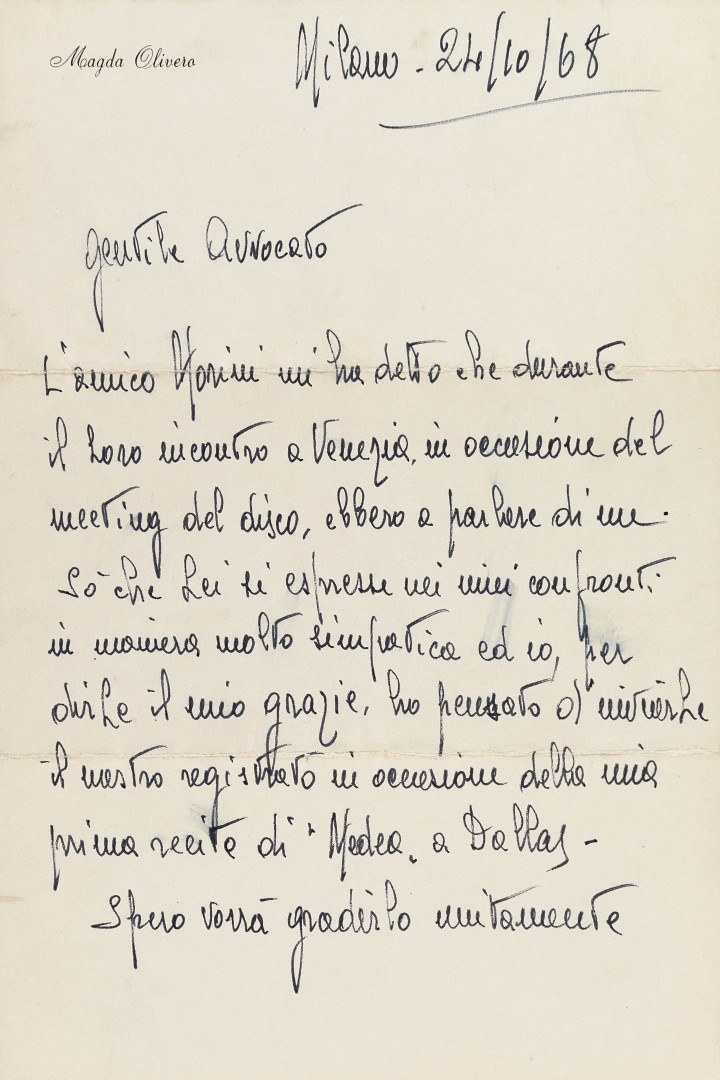 Magda Olivero
Milano - 24/10/68
Gentile Avvocato
L'amico Morini mi ha detto che durante
il Loro incontro a Venezia, in occasione del
meeting del disco, ebbero a parlare di me.
Sò che Lei si espresse nei miei confronti
in maniera molto simpatica ed io, per
dirLe il mio grazie, ho pensato d'inviarLe
il nastro registrato in occasione della mia
prima recita di "Medea" a Dallas -
Spero vorrà gradirlo unitamente